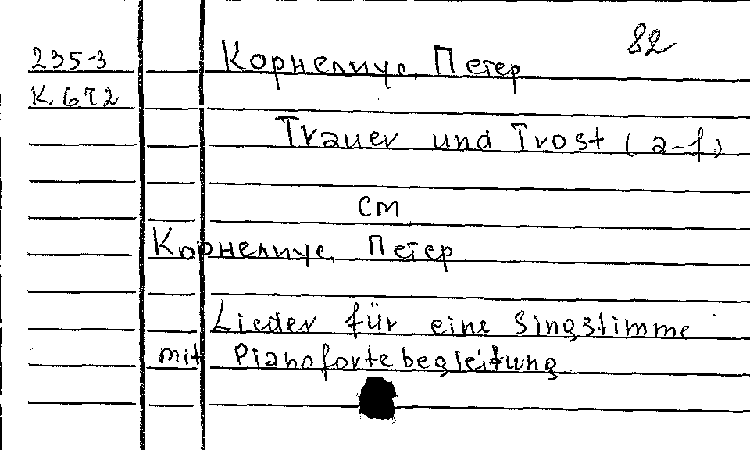 82
235-3 Корнелиус, Петер
К. 672
Trauer und Trost (a-f)
см
Корнелиус, Петер
Lieder für eine Singstimme
mit Pianofortebegleitung